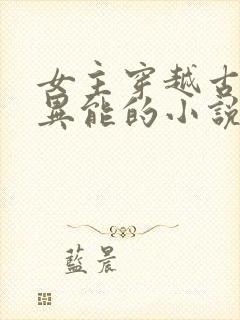 女主穿越古
異能的小說
藍晨